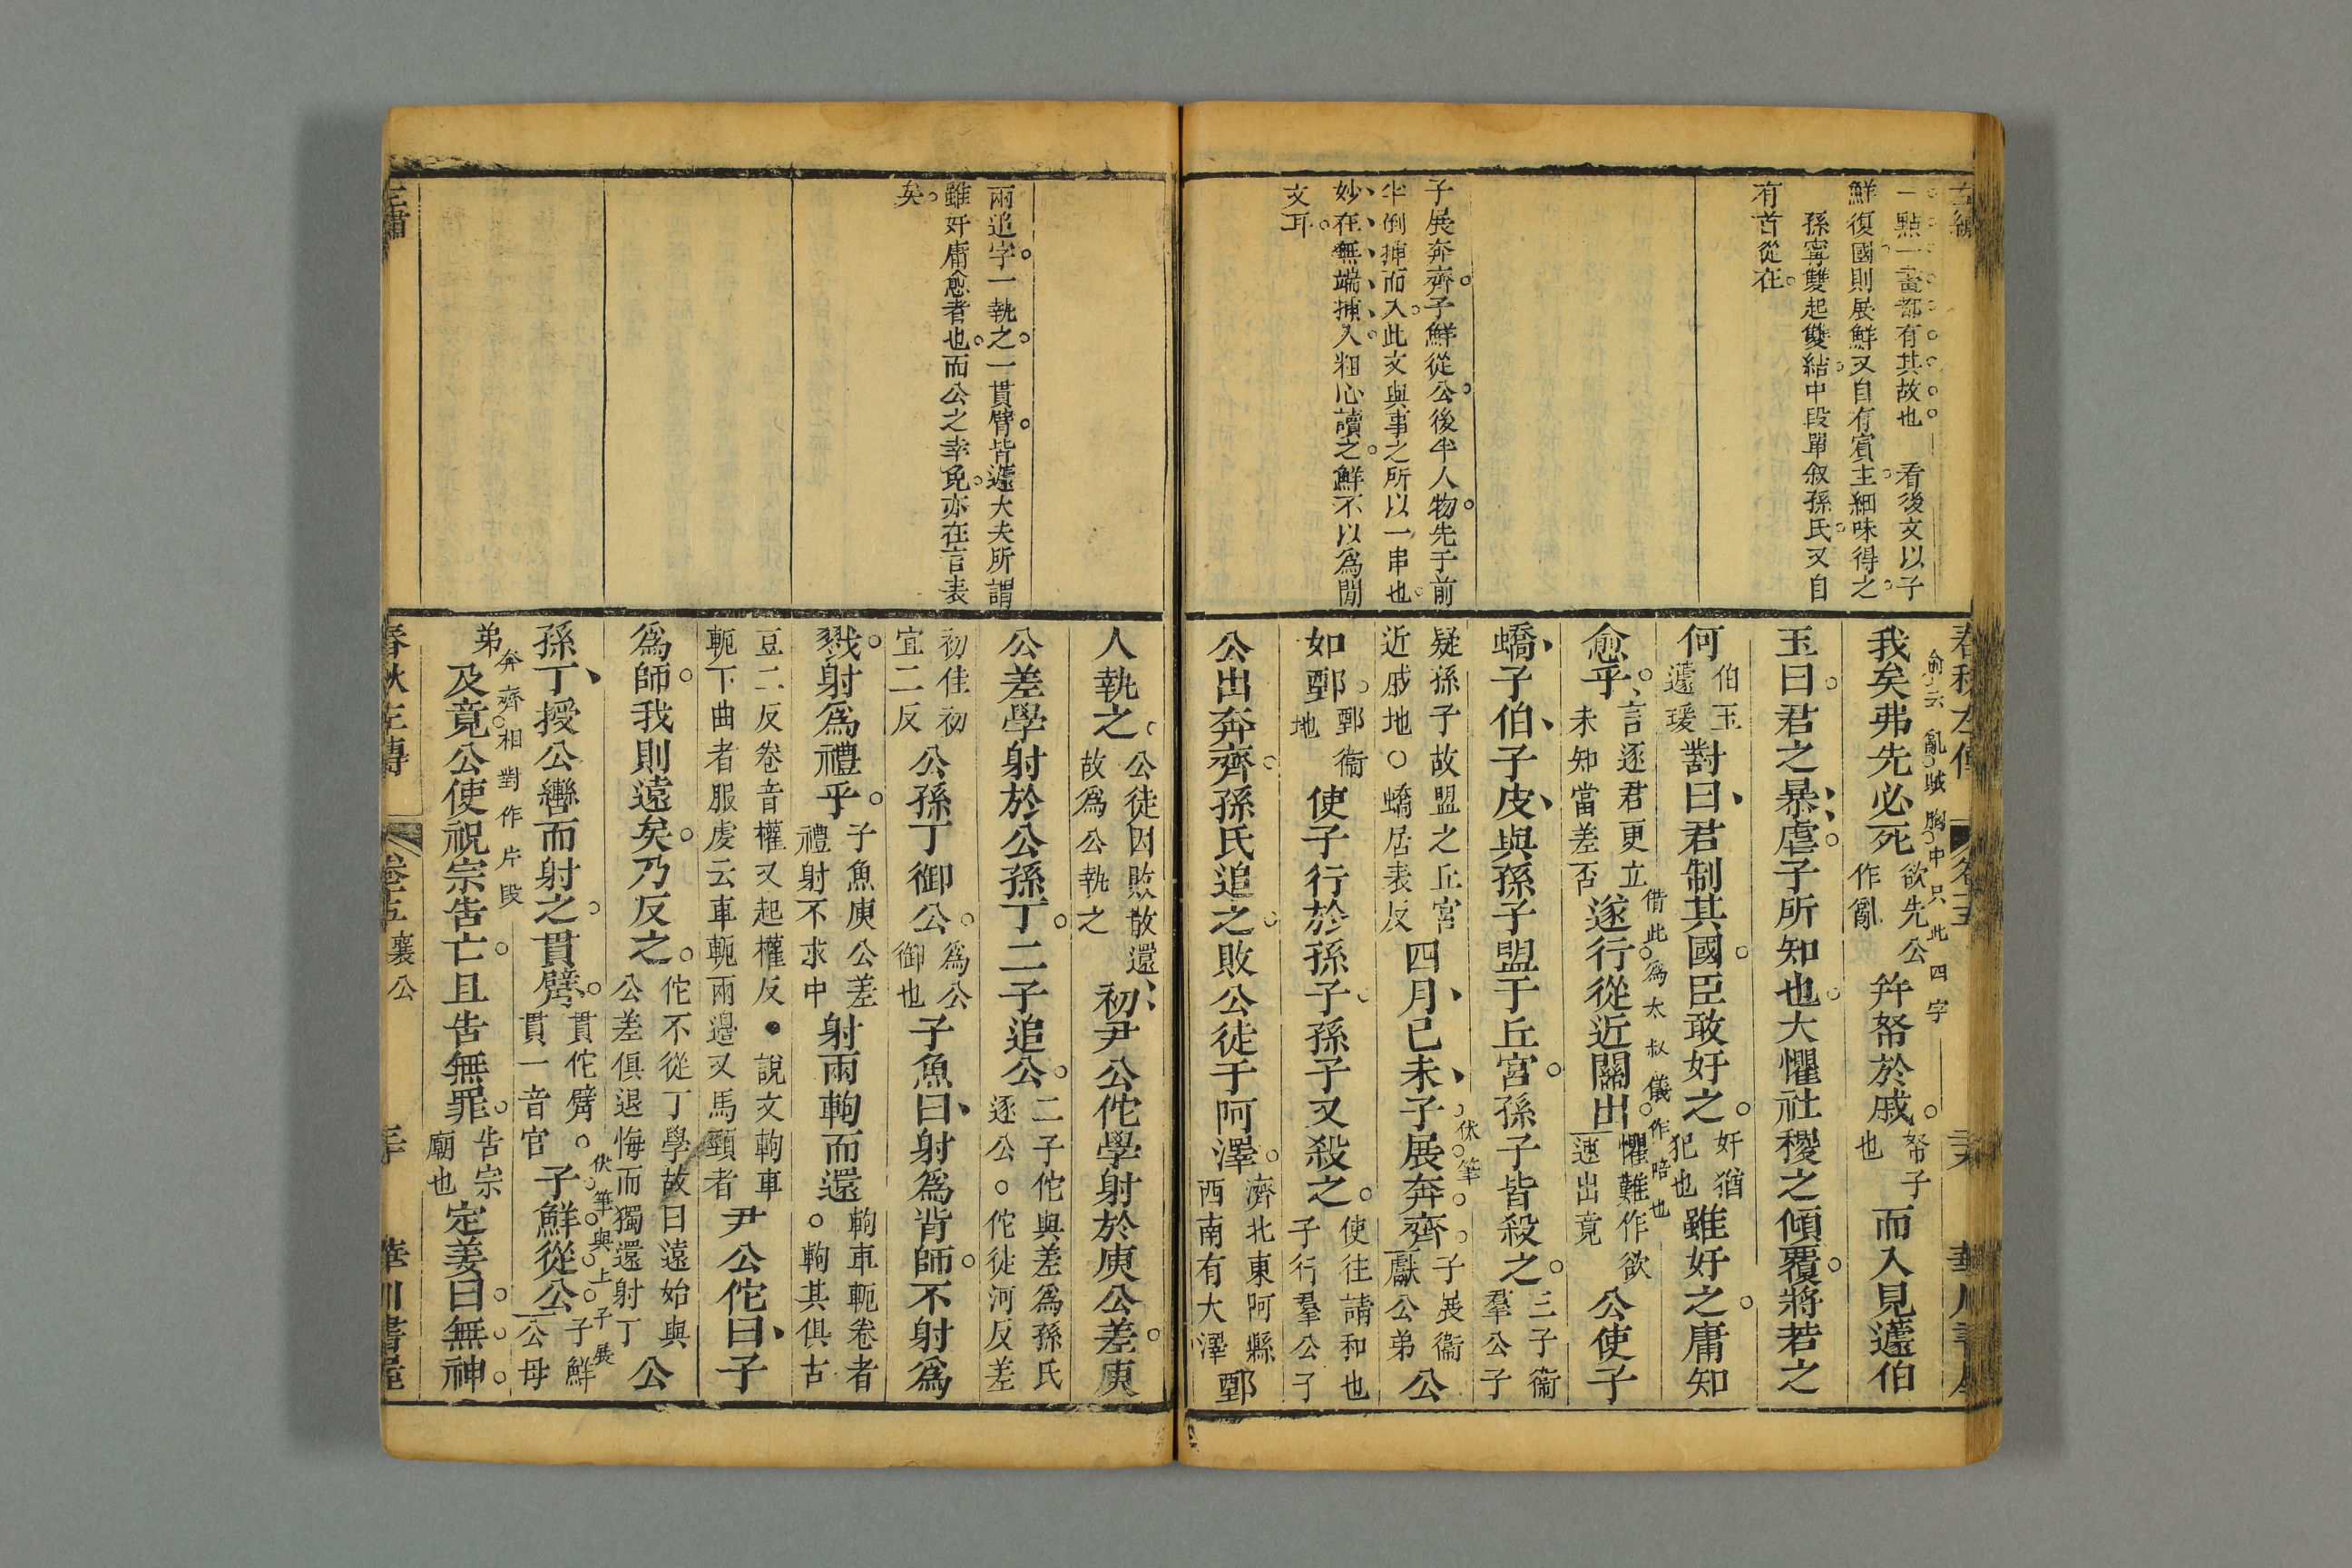 一點一畫都有其故也　看後文以子
鮮復國則展鮮又自有賓主細味得之
孫寗雙起雙結中段單叙孫氏又自
有首從在
子展奔齊子鮮從公後半人物先于前
半倒揷而入此文與事之所以一串也
妙在無端揷入粗心讀之鮮不以爲閒
文耳
春秋左傳
俞云亂賊胸中只此四字
我矣弗先必死欲先公作亂并帑於戚帑子也而入見蘧伯
玉曰君之暴虐子所知也大懼社稷之傾覆將若之
何伯玉蘧瑗對曰君制其國臣敢奸之奸猶犯也雖奸之庸知
借此爲太叔儀作陪也
愈乎言逐君更立未知當差否遂行從近關出懼難作欲速出竟公使子
蟜子伯子皮與孫子盟于丘宮孫子皆殺之三子衞羣公子
伏筆
疑孫子故盟之丘宮近戚地○蟜居表反四月己未子展奔齊子展衞獻公弟公
如鄄鄄衞地使子行於孫子孫子又殺之使往請和也子行羣公子
公出奔齊孫氏追之敗公徒于阿澤濟北東阿縣西南有大澤鄄
兩追字一執之一貫臂皆蘧大夫所謂
雖奸庸愈者也而公之幸免亦在言表
矣
人執之公徒因敗散還故爲公執之初尹公佗學射於庾公差庾
公差學射於公孫丁二子追公二子佗與差爲孫氏逐公○佗徒河反差
初佳初宜二反公孫丁御公爲公御也子魚曰射爲背師不射爲
戮射爲禮乎子魚庾公差禮射不求中射兩軥而還軥車軛卷者○軥其俱古
豆二反卷音權又起權反●說文軥車軛下曲者服虔云車軛兩邊叉馬頸者尹公佗曰子
爲師我則遠矣乃反之佗不從丁學故曰遠始與公差俱退悔而獨還射丁公
伏筆與上子展
孫丁授公轡而射之貫臂貫佗臂○貫一音官子鮮從公子鮮公母
奔齊相對作片段
弟及竟公使祝宗告亡且告無罪告宗廟也定姜曰無神
春秋左傳
卷十五
襄公